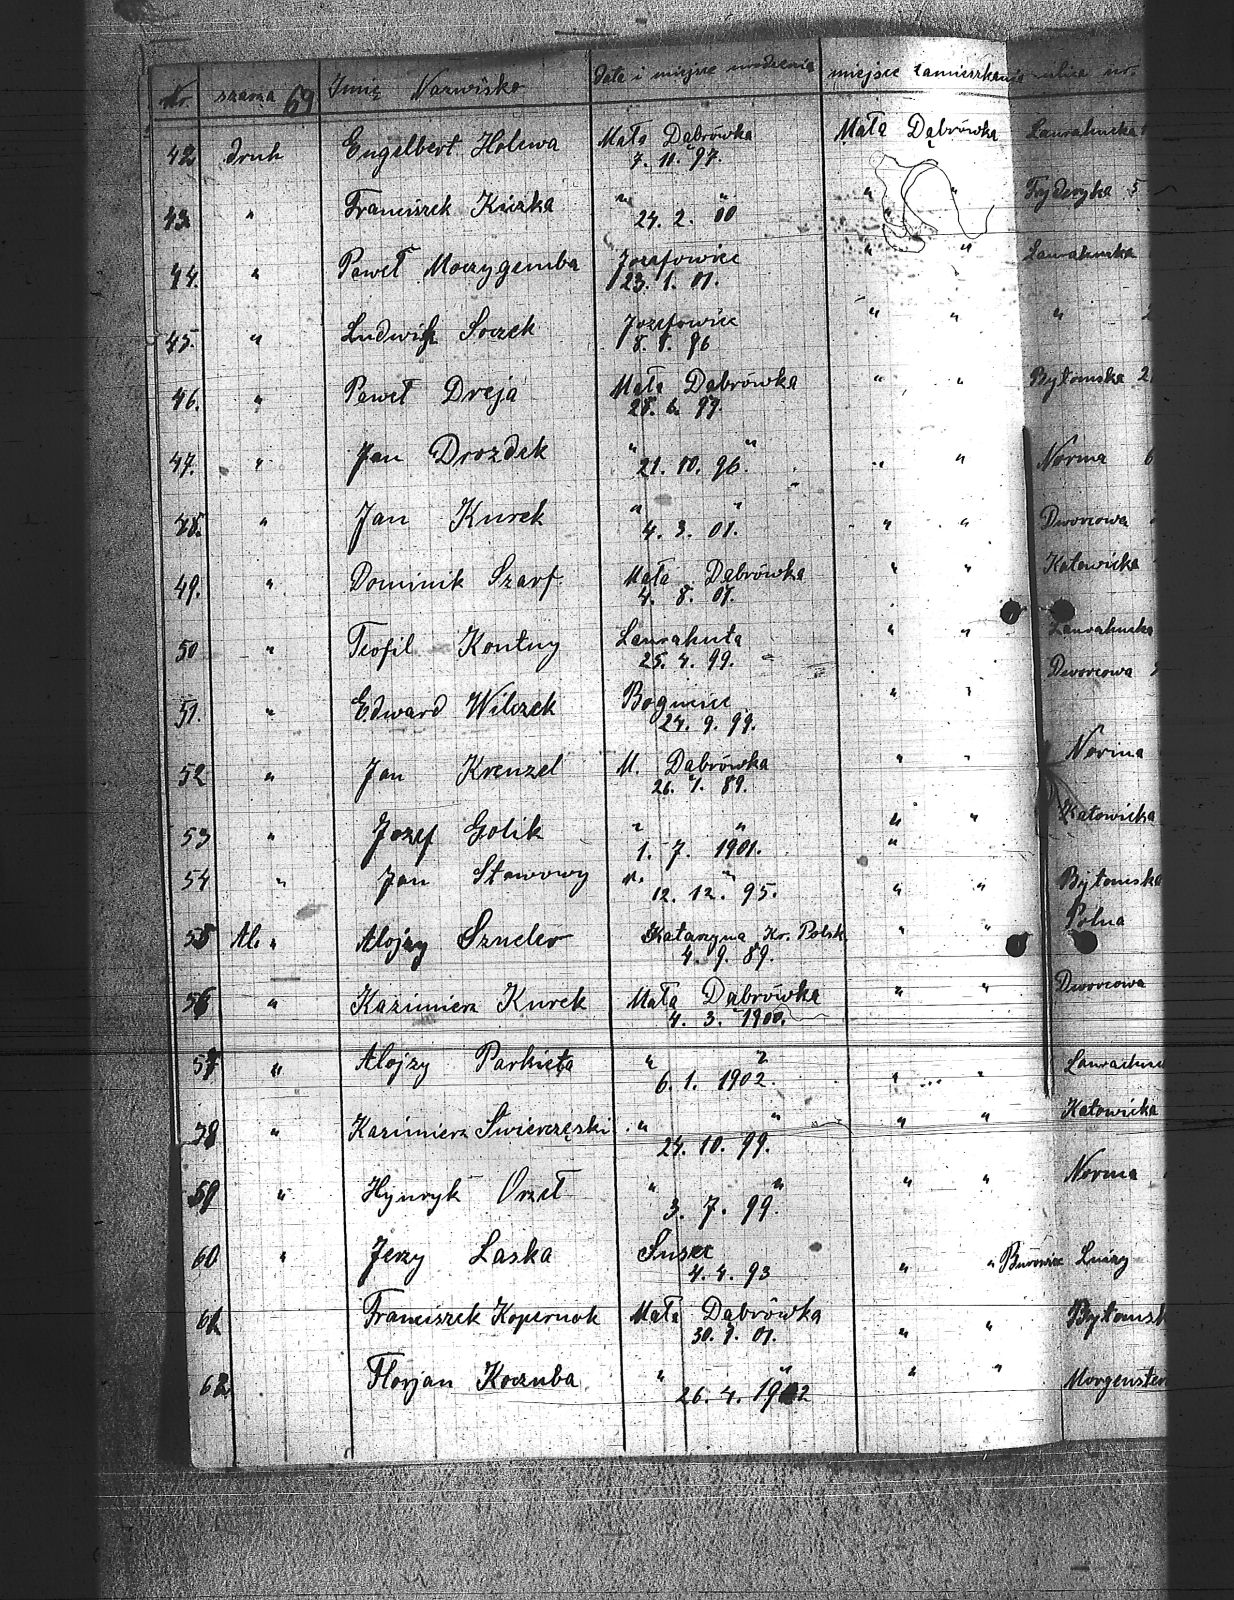 Nr. szarża 69 Imię Nazwisko data i miejsce urodzenia miejsce zamieszkania ulica nr.
42 druh Engelbert Holewa Mała Dąbrówka Mała Dąbrówka Laurahucka
7. 11. 97.
43 " Franciszek Kiczka " " " " Fryderyka 5
24. 2. 00
44. " Paweł Moczygemba Jozefowiec " " Laurahucka
23. 1. 01.
45. " Ludwik Soczek Jozefowiec " " "
8. 8. 96
46. " Paweł Dreja Mała Dąbrówka " " Bytomska 2
28. 6. 99.
47. " Jan Drozdek " " " " Norma 6
21. 10. 96.
48. " Jan Kurek " " " " Dworcowa
4. 3. 01.
49. " Dominik Szarf Mała Dąbrówka " " Katowicka
4. 8. 01.
50 " Teofil Kontny Laurahuta " " Laurahucka
25. 4. 99.
Dworcowa
51. " Edward Wilczek " "
24. 9. 99.
52 " Jan Krenzel M. Dąbrówka " " Norma
26. 1. 89.
53 " Jozef Golik " " " " Katowicka
1. 7. 1901.
54 " Jan Stawowy " " " " Bytomska
12. 12. 95.
55 " Alojzy Szneler Katarzyna Kr. Polsk. " " Polna
4. 9. 89.
56 " Kazimierz Kurek Mała Dąbrówka " " Dworcowa
4. 3. 1900.
57 " Alojzy Parkieta " " " "
6. 1. 1902.
58 " Kazimierz Swierczęski " " " " Katowicka
24. 10. 99.
59 " Hynryk Orzeł " " " " Norma
3. 7. 99.
60 " Jerzy Laska Susec " " Burowiec Luizy
4. 4. 93
61 Franciszek Kopernok Mała Dąbrówka " " Bytomsk
30. 1. 01.
62 Florjan Koczuba " " " " Morgenster
26. 4. 1902